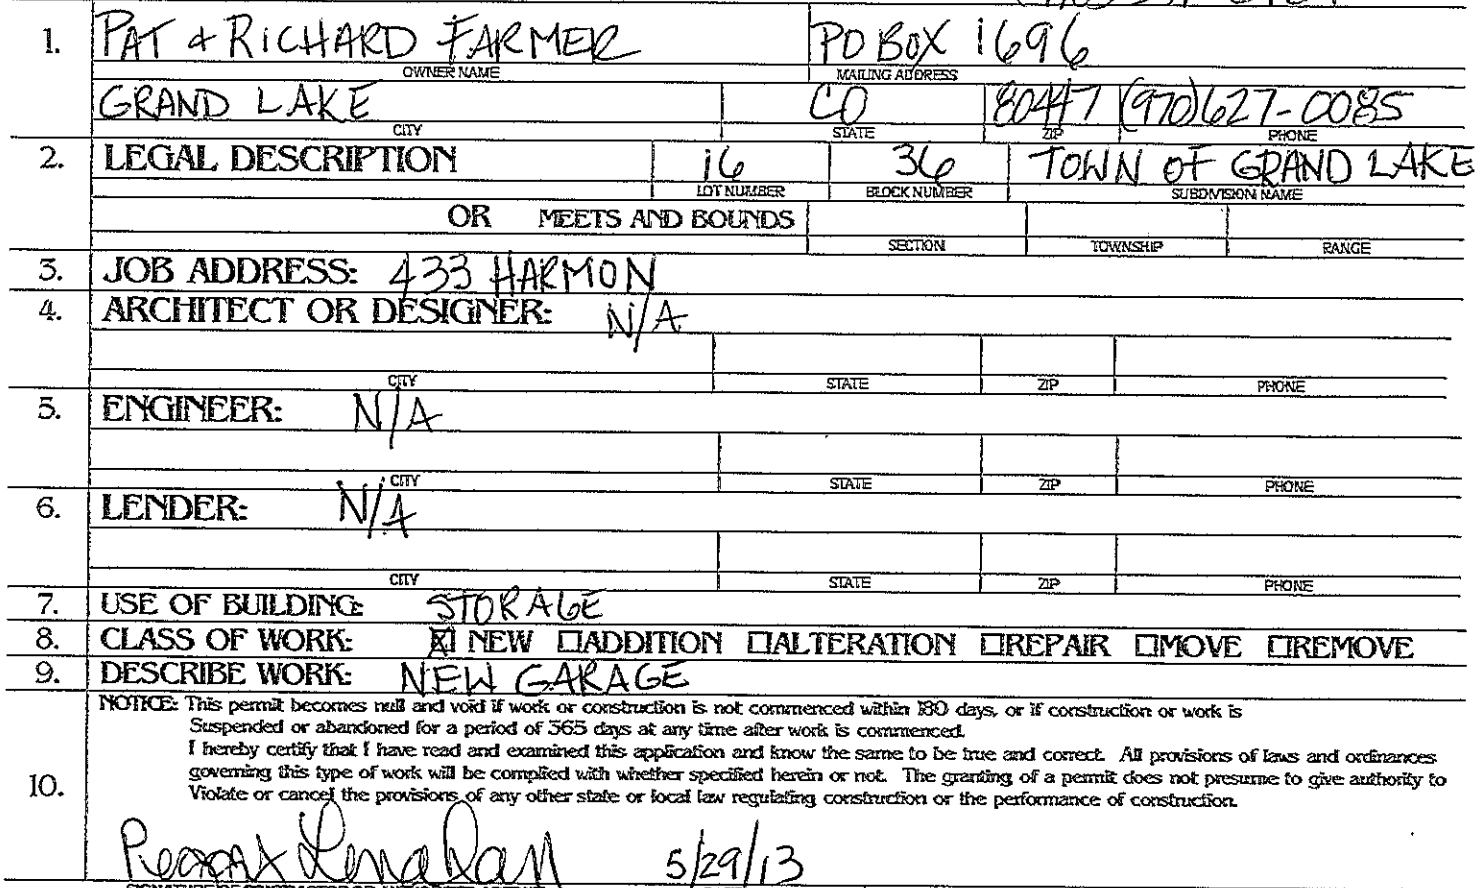 1. PAT & RICHARD FARMER PO BOX 1696
OWNER NAME MAILING ADDRESS
GRAND LAKE CO 80447 (970)627-0085
CITY STATE ZIP PHONE
2. LEGAL DESCRIPTION 16 36 TOWN OF GRAND LAKE
LOT NUMBER BLOCK NUMBER SUBDIVISION NAME
OR MEETS AND BOUNDS
SECTION TOWNSHIP RANGE
3. JOB ADDRESS: 433 HARMON
4. ARCHITECT OR DESIGNER: N/A
CITY STATE ZIP PHONE
5. ENGINEER: N/A
CITY STATE ZIP PHONE
6. LENDER: N/A
CITY STATE ZIP PHONE
7. USE OF BUILDING: STORAGE
8. CLASS OF WORK: ☒ NEW ☐ADDITION ☐ALTERATION ☐REPAIR ☐MOVE ☐REMOVE
9. DESCRIBE WORK: NEW GARAGE
NOTICE: This permit becomes null and void if work or construction is not commenced within 180 days, or if construction or work is
Suspended or abandoned for a period of 365 days at any time after work is commenced.
I hereby certify that I have read and examined this application and know the same to be true and correct. All provisions of laws and ordinances
governing this type of work will be complied with whether specified herein or not. The granting of a permit does not presume to give authority to
10. Violate or cancel the provisions of any other state or local law regulating construction or the performance of construction.
5/29/13